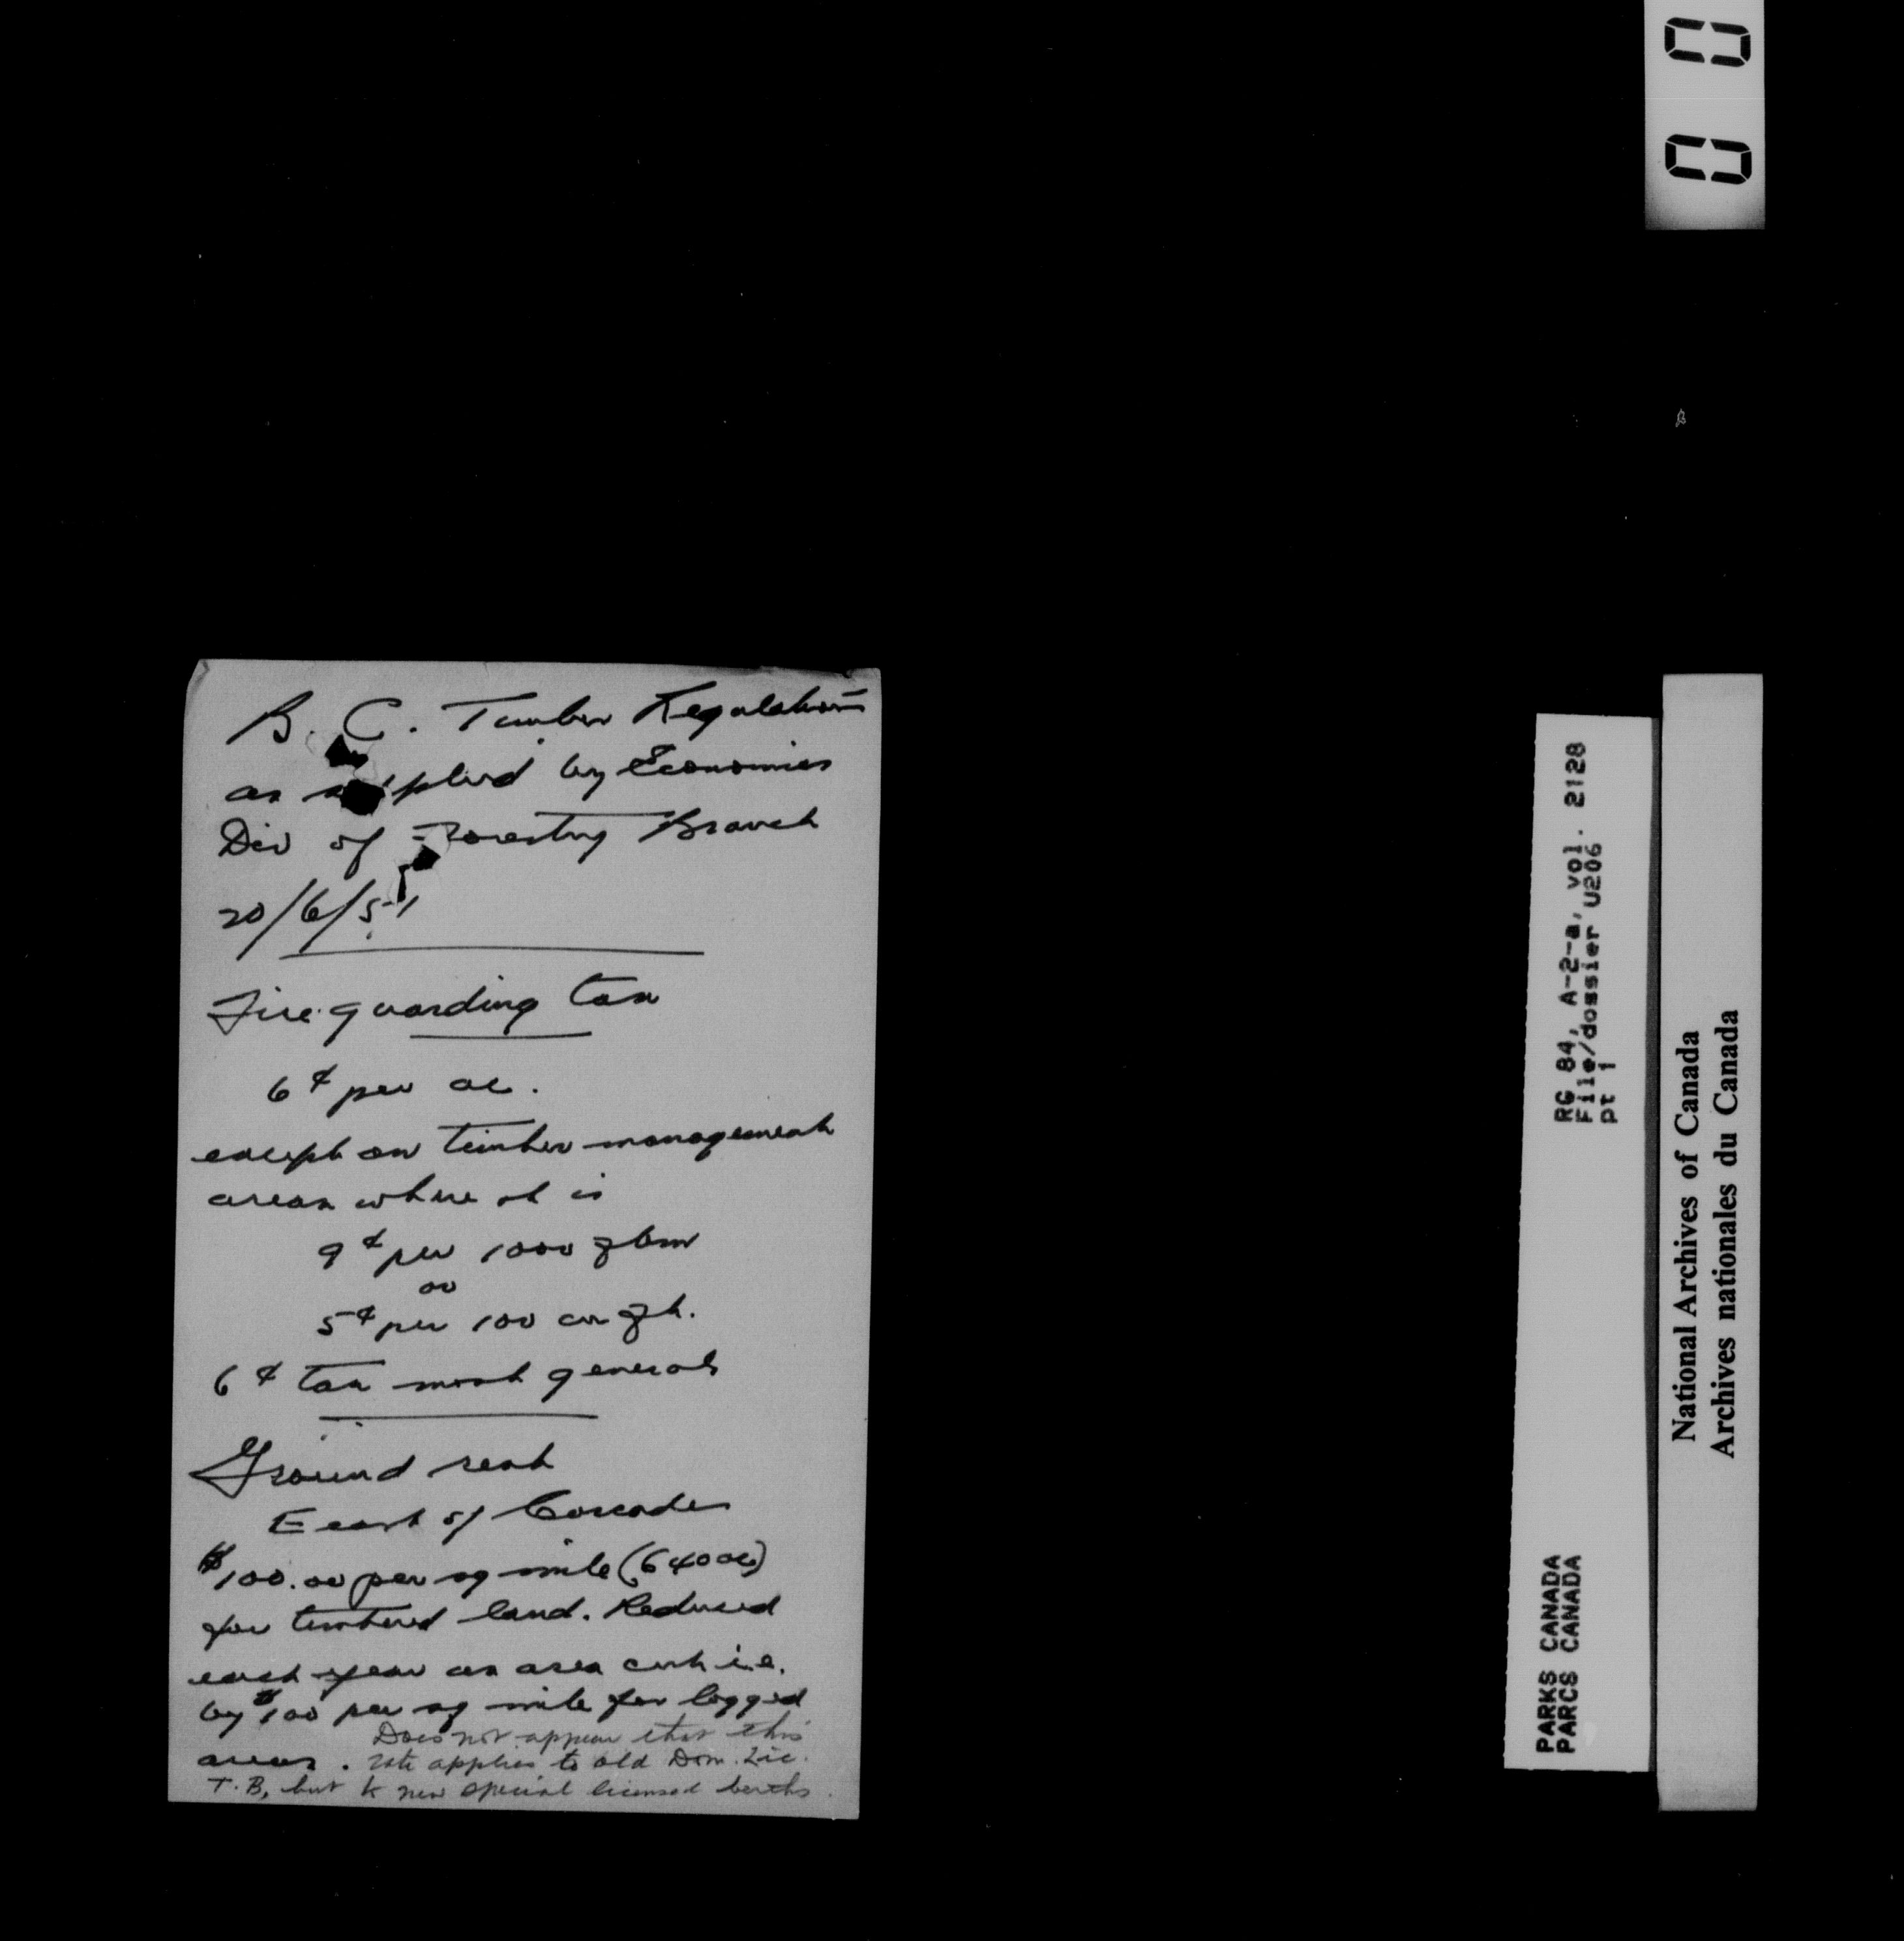 B. C. Timber Regulations
as supplied by Economics
Div of Forestry Branch
20/6/51
Fire guarding tax
6¢ per ac.
except on timber management
areas where it is
9¢ per 1000 fbm
or
5¢ per 100 cu ft.
6¢ tax most general
Ground rent
East of Cascades
$100.00 per sq mile (640 ac)
for timbered land. Reduced
each year as area cut i.e.
by $100 per sq mile for logged
areas.
Does not appear that this
rate applies to old Dom. Lic.
T.B, but to new special licensed berths.
RG 84, A-2-a, vol. 2128
File/dossier U206
pt 1
PARKS CANADA
PARCS CANADA
National Archives of Canada
Archives nationales du Canada